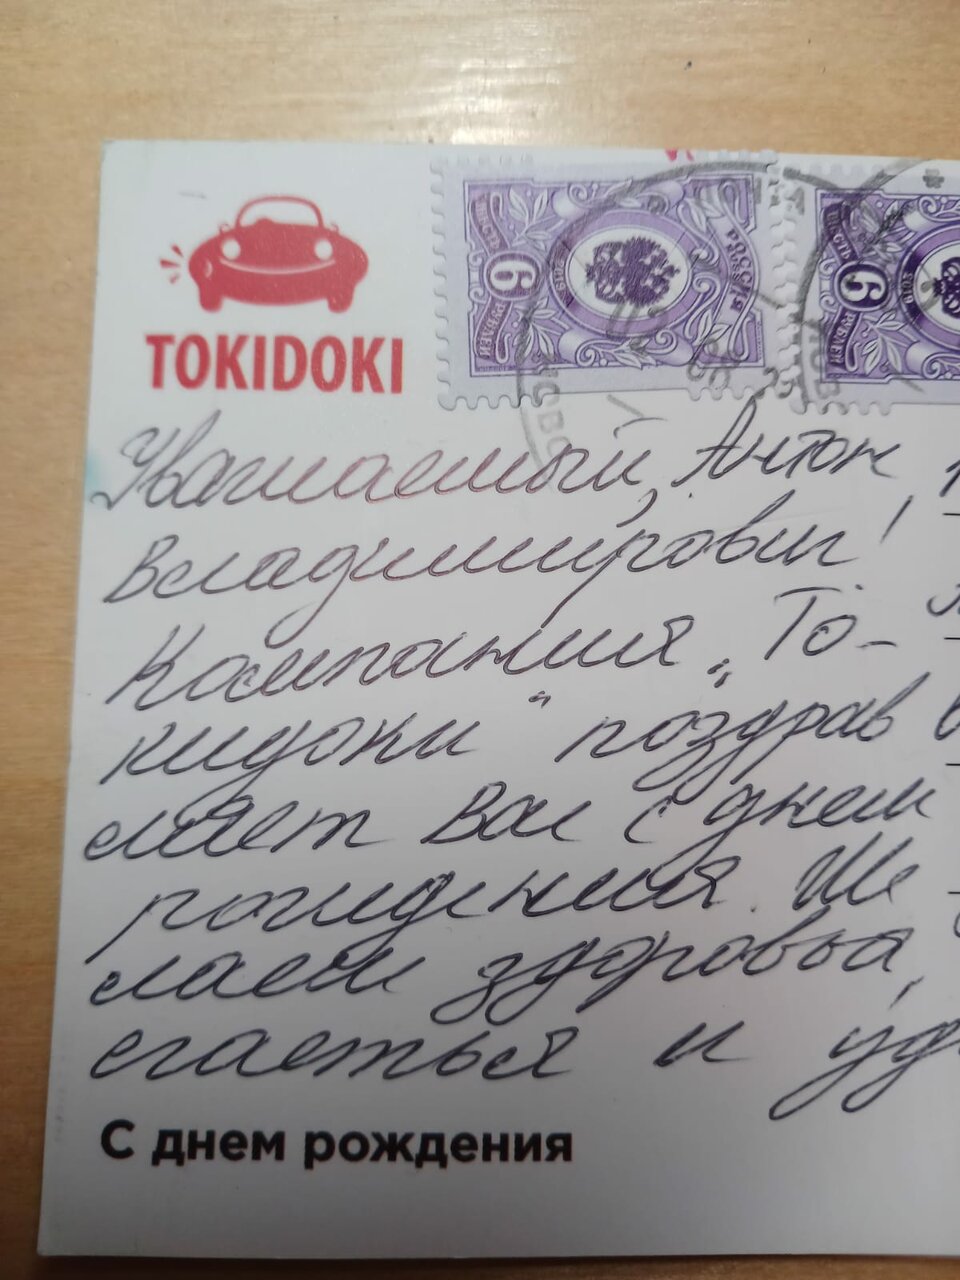 TOKIDOKI
ШЕСТЬ 6 РУБЛЕЙ РОССИЯ
ШЕСТЬ 6 РУБЛЕЙ
Уважаемый, Антон
Владимирович!
Компания „То-
кидоки" поздрав
ляет Вас с днем
рождения. Же
лаем здоровья,
счастья и уд
С днем рождения